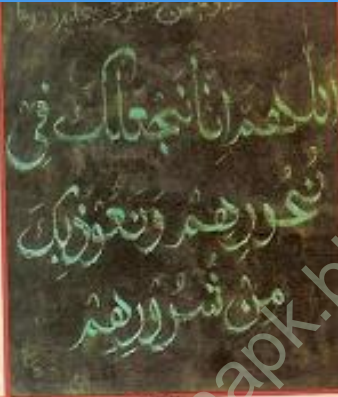 اللهم انا نجعلك في
نُحورِهِم وَنَعُوذُبِكَ
مِنْ شُرُورِهِمْ
apk.b